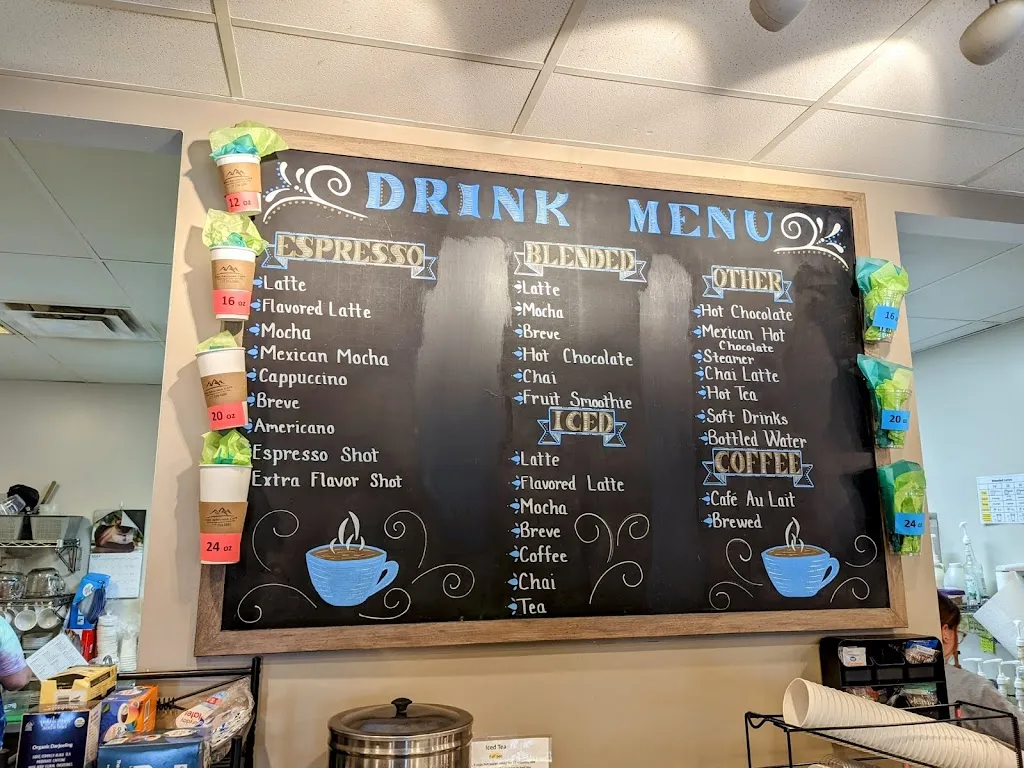 DRINK MENU
ESPRESSO
Latte
Flavored Latte
Mocha
Mexican Mocha
Cappuccino
Breve
Americano
Espresso Shot
Extra Flavor Shot
BLENDED
Latte
Mocha
Breve
Hot Chocolate
Chai
Fruit Smoothie
ICED
Latte
Flavored Latte
Mocha
Breve
Coffee
Chai
Tea
OTHER
Hot Chocolate
Mexican Hot
Chocolate
Steamer
Chai Latte
Hot Tea
Soft Drinks
Bottled Water
COFFEE
Café Au Lait
Brewed
12 oz
16 oz
20 oz
24 oz
16
20 oz
24 oz
Organic Darjeeling
Iced Tea